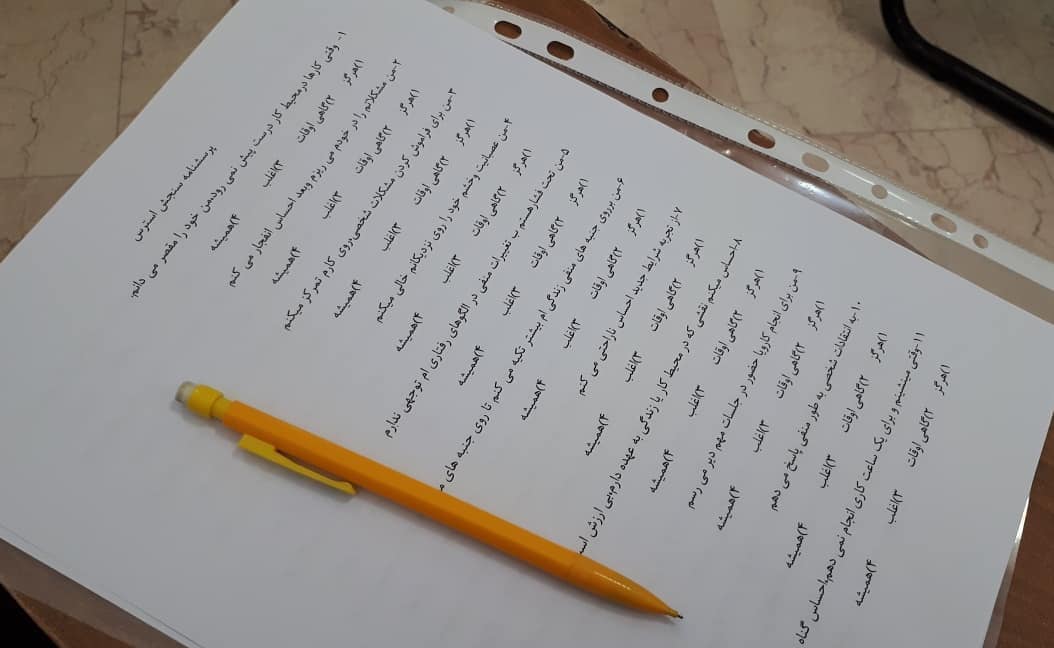 پرسشنامه سنجش استرس
۱- وقتی کارها درمحیط کار درست پیش نمی رود،من خود را مقصر می دانم.
۱)هرگز ۲)گاهی اوقات ۳)اغلب ۴)همیشه
۲-من مشکلاتم را در خودم می ریزم وبعد احساس انفجار می کنم
۱)هرگز ۲)گاهی اوقات ۳)اغلب ۴)همیشه
۳-من برای فراموش کردن مشکلات شخصی روی کارم تمرکز میکنم
۱)هرگز ۲)گاهی اوقات ۳)اغلب ۴)همیشه
۴-من عصبانیت وخشم خود را روی نزدیکانم خالی میکنم
۱)هرگز ۲)گاهی اوقات ۳)اغلب ۴)همیشه
۵-من تحت فشار هستم ب تغییرات منفی در الگوهای رفتاری ام توجهی ندارم
۱)هرگز ۲)گاهی اوقات ۳)اغلب ۴)همیشه
۶-من برروی جنبه های منفی زندگی ام بیشتر تکیه می کنم تا روی جنبه های
۱)هرگز ۲)گاهی اوقات ۳)اغلب ۴)همیشه
۷-از تجربه شرایط جدید احساس ناراحتی می کنم
۱)هرگز ۲)گاهی اوقات ۳)اغلب ۴)همیشه
۸-احساس میکنم نقشی که در محیط کار یا زندگی به عهده دارم،بی ارزش
۱)هرگز ۲)گاهی اوقات ۳)اغلب ۴)همیشه
۹-من برای انجام کارویا حضور در جلسات مهم دیر می رسم
۱)هرگز ۲)گاهی اوقات ۳)اغلب ۴)همیشه
۱۰-به انتقادات شخصی به طور منفی پاسخ می دهم
۱)هرگز ۲)گاهی اوقات ۳)اغلب ۴)همیشه
۱۱-وقتی مینشینم و برای یک ساعت کاری انجام نمی دهم،احساس گناه
۱)هرگز ۲)گاهی اوقات ۳)اغلب ۴)همیشه